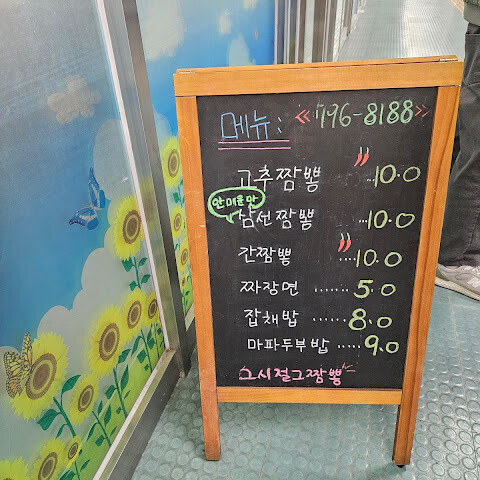 메뉴: 《796-8188》
고추짬뽕 10.0
안매운맛
삼선짬뽕 ..10.0
간짬뽕 ....10.0
짜장면 ...... 5.0
잡채밥 ...... 8.0
마파두부밥 ..... 9.0
그시절그짬뽕